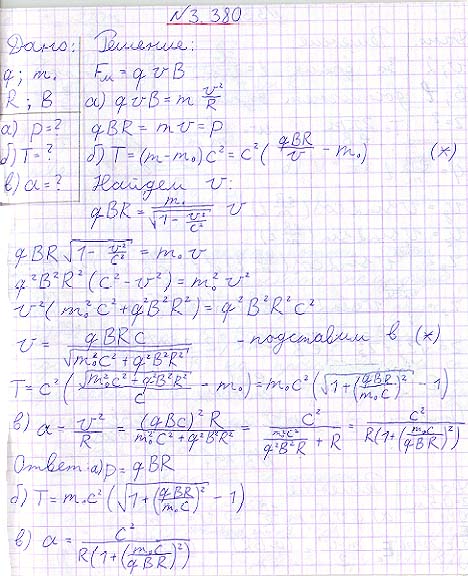 №3.380
Дано: Решение:
q; m₀ Fм = q v B
R; B а) q v B = m v²/R
а) p=? qBR = mv = p
б) T=? б) T = (m-m₀)c² = c²(qBR/v - m₀) (x)
в) a=? Найдем v:
qBR = m₀/√(1 - v²/c²) v
qBR√(1 - v²/c²) = m₀v
q²B²R²(c²-v²) = m₀²v²
v²(m₀²c²+q²B²R²) = q²B²R²c²
v = qBRc/√(m₀²c²+q²B²R²) - подставим в (x)
T = c²(√(m₀²c²+q²B²R²)/c - m₀) = m₀c²(√(1+(qBR/m₀c)²) - 1)
в) a = v²/R = (qBc)²R/(m₀²c²+q²B²R²) = c²/(m₀²c²/(q²B²R) + R) = c²/(R(1+(m₀c/qBR)²))
Ответ: а) p = qBR
б) T = m₀c²(√(1+(qBR/m₀c)²) - 1)
в) a = c²/(R(1+(m₀c/qBR)²))